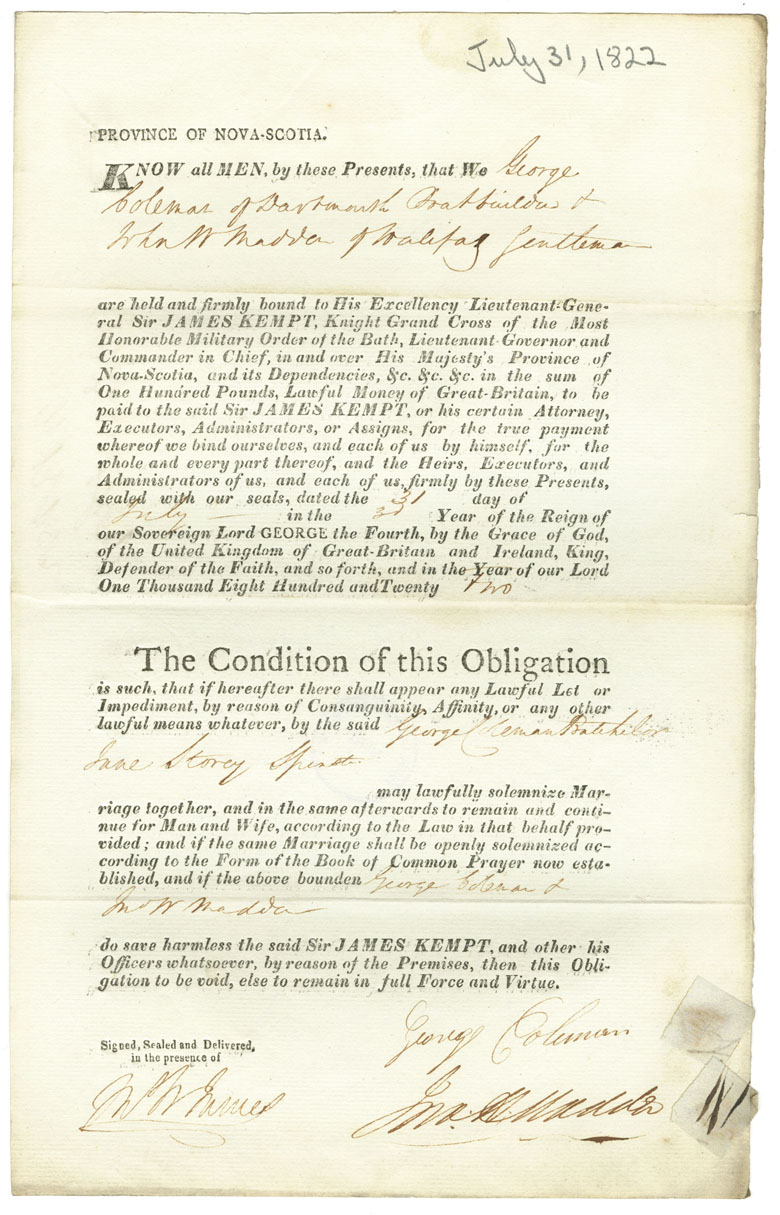 July 31, 1822
PROVINCE OF NOVA-SCOTIA.
KNOW all MEN, by these Presents, that We George
Coleman of Dartmouth Boatbuilder &
John W Madden of Halifax Gentleman
are held and firmly bound to His Excellency Lieutenant-Gene-
ral Sir JAMES KEMPT, Knight Grand Cross of the Most
Honorable Military Order of the Bath, Lieutenant Governor and
Commander in Chief, in and over His Majesty's Province of
Nova-Scotia, and its Dependencies, &c. &c. &c. in the sum of
One Hundred Pounds, Lawful Money of Great-Britain, to be
paid to the said Sir JAMES KEMPT, or his certain Attorney,
Executors, Administrators, or Assigns, for the true payment
whereof we bind ourselves, and each of us by himself, for the
whole and every part thereof, and the Heirs, Executors, and
Administrators of us, and each of us, firmly by these Presents,
sealed with our seals, dated the 31 day of
July in the 3d Year of the Reign of
our Sovereign Lord GEORGE the Fourth, by the Grace of God,
of the United Kingdom of Great-Britain and Ireland, King,
Defender of the Faith, and so forth, and in the Year of our Lord
One Thousand Eight Hundred and Twenty two
The Condition of this Obligation
is such, that if hereafter there shall appear any Lawful Let or
Impediment, by reason of Consanguinity, Affinity, or any other
lawful means whatever, by the said George Coleman
Jane Storey Spinst
may lawfully solemnize Mar-
riage together, and in the same afterwards to remain and conti-
nue for Man and Wife, according to the Law in that behalf pro-
vided; and if the same Marriage shall be openly solemnized ac-
cording to the Form of the Book of Common Prayer now esta-
blished, and if the above bounden George Coleman &
Jno W Madden
do save harmless the said Sir JAMES KEMPT, and other his
Officers whatsoever, by reason of the Premises, then this Obli-
gation to be void, else to remain in full Force and Virtue.
Signed, Sealed and Delivered,
in the presence of
George Coleman
James
Jno. W Madden